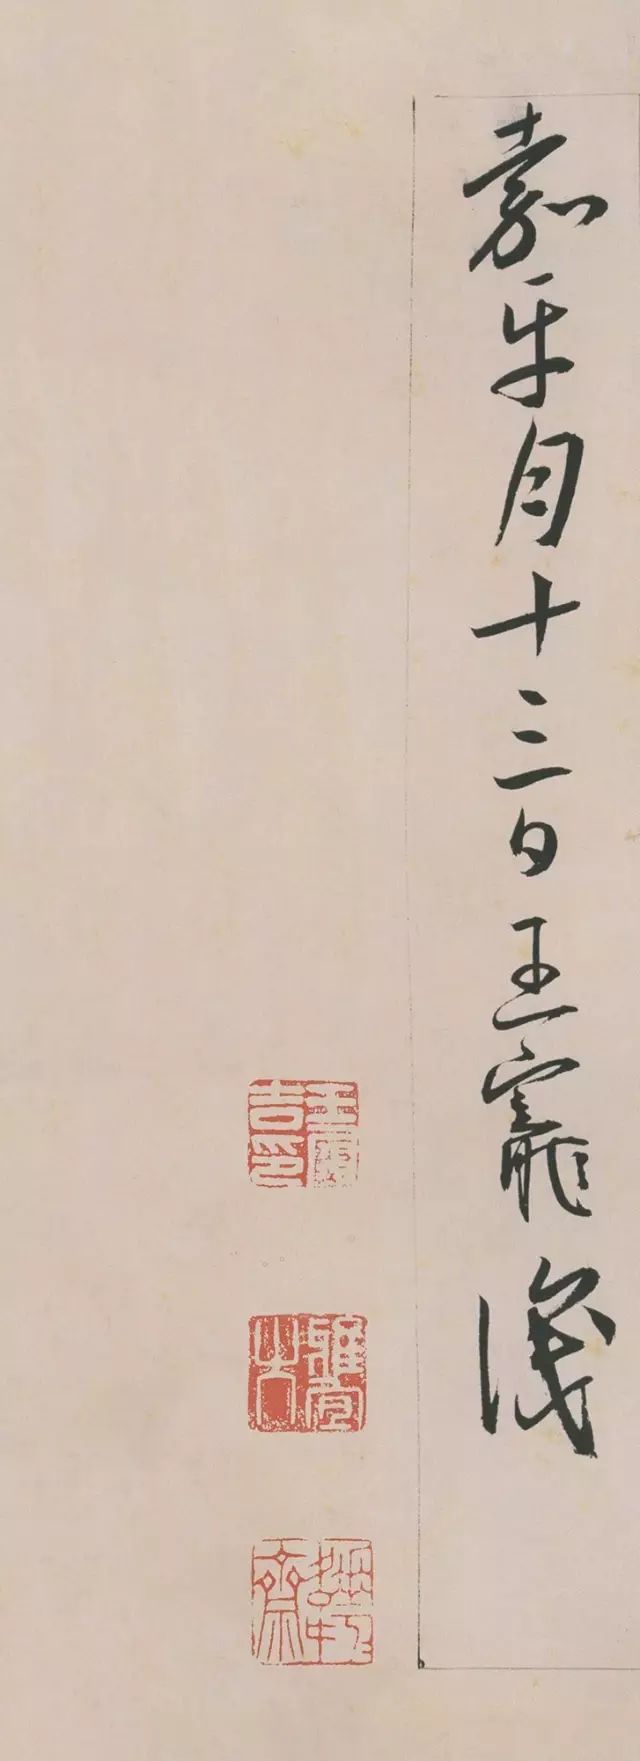 嘉平月十三日王寵識
王履吉印
雅宜山人